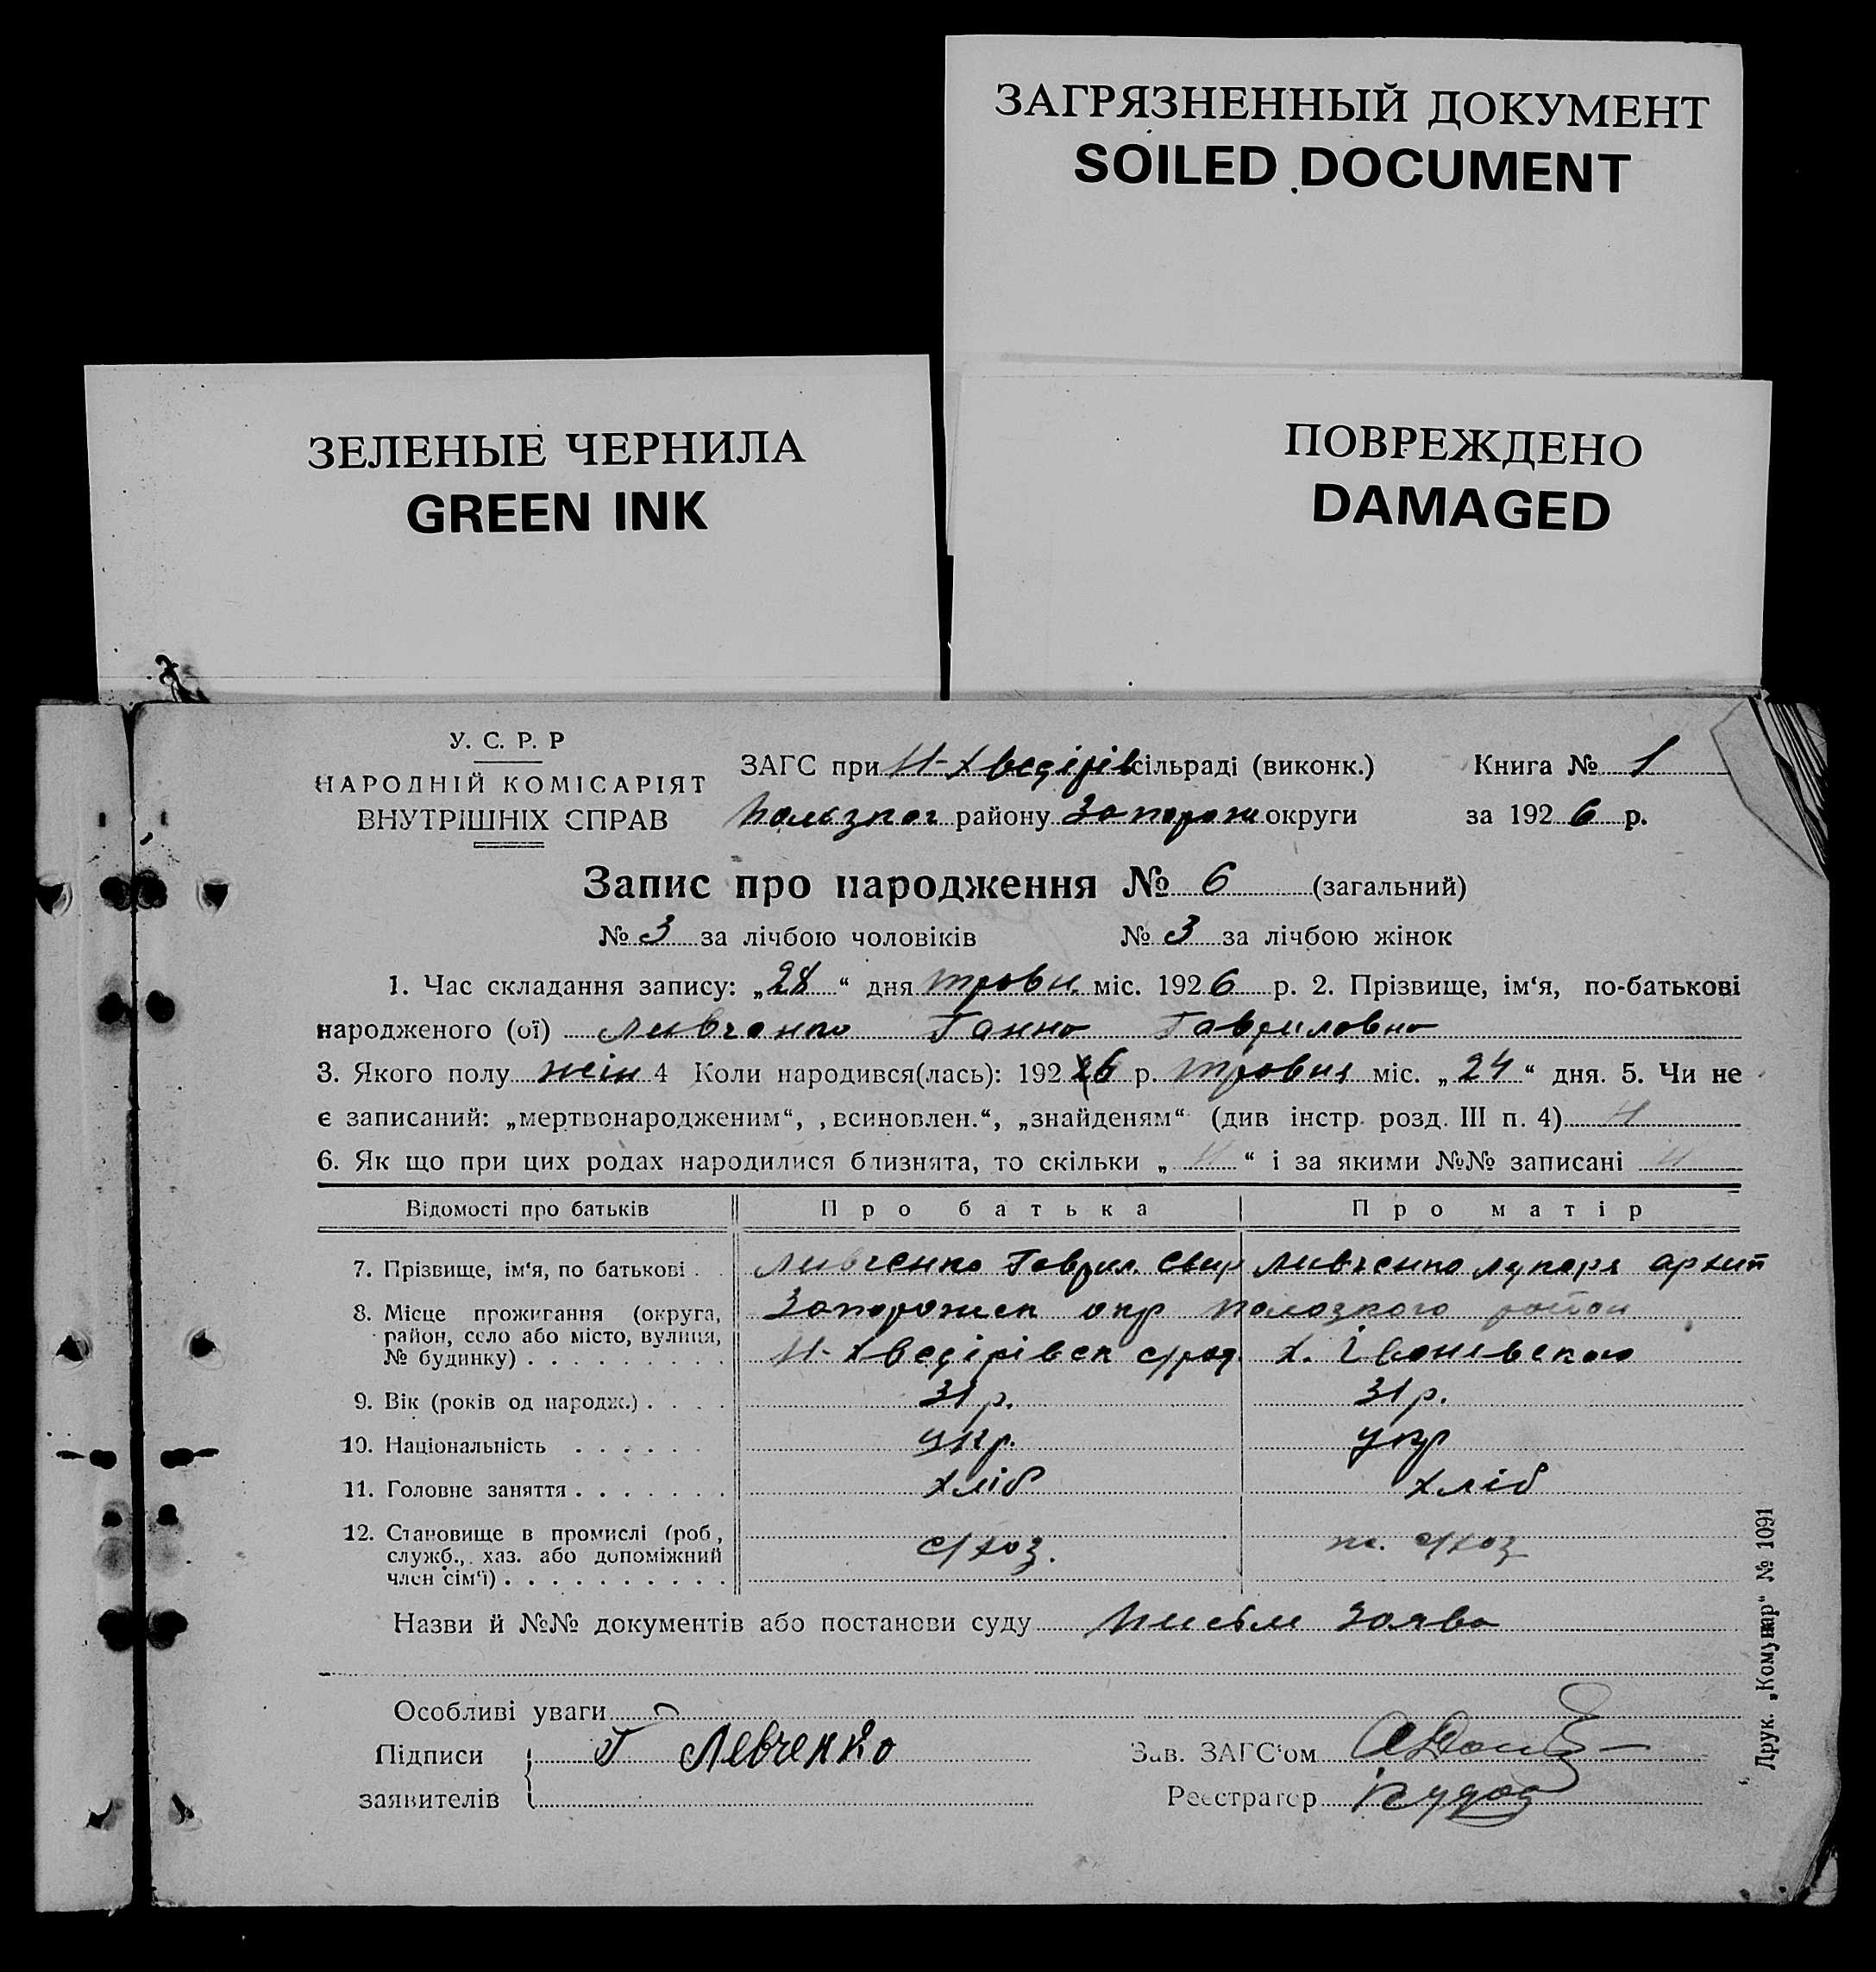 ЗАГРЯЗНЕННЫЙ ДОКУМЕНТ
SOILED DOCUMENT
ЗЕЛЕНЫЕ ЧЕРНИЛА
GREEN INK
ПОВРЕЖДЕНО
DAMAGED
У. С. Р. Р
НАРОДНІЙ КОМІСАРІЯТ
ВНУТРІШНІХ СПРАВ
ЗАГС при Н-Хведірів сільраді (виконк.)
району Запорож округи
Книга № 1
за 1926 р.
Запис про народження № 6 (загальний)
№ 3 за лічбою чоловіків № 3 за лічбою жінок
1. Час складання запису: „28“ дня травн міс. 1926 р. 2. Прізвище, ім‘я, по-батькові
народженого (ої) Ливченко Ганна Гавриловна
3. Якого полу жін 4 Коли народився(лась): 1926 р. травня міс. „24“ дня. 5. Чи не
є записаний: „мертвонародженим“, „всиновлен.“, „знайденям“ (див інстр. розд. III п. 4)
6. Як що при цих родах народилися близнята, то скільки „ “ і за якими №№ записані
Відомості про батьків Про батька Про матір
7. Прізвище, ім‘я, по батькові Ливченко Гаврил. Свир Ливченко Лукеря Архип
8. Місце проживання (округа, район, село або місто, вулиця, № будинку) Запорожск окр Полозкого район
Н-Хведірівск с/рад. х. Івановского
9. Вік (років од народж.) 31 р. 31 р.
10. Національність Укр. Укр
11. Головне заняття хліб хліб
12. Становище в промислі (роб., служб., хаз. або допоміжний член сім‘ї) с/хоз. с/хоз
Назви й №№ документів або постанови суду письм заява
Особливі уваги
Підписи заявителів Г Левченко
Зав. ЗАГС‘ом
Реєстратор
Друк. „Комунар“ № 1091